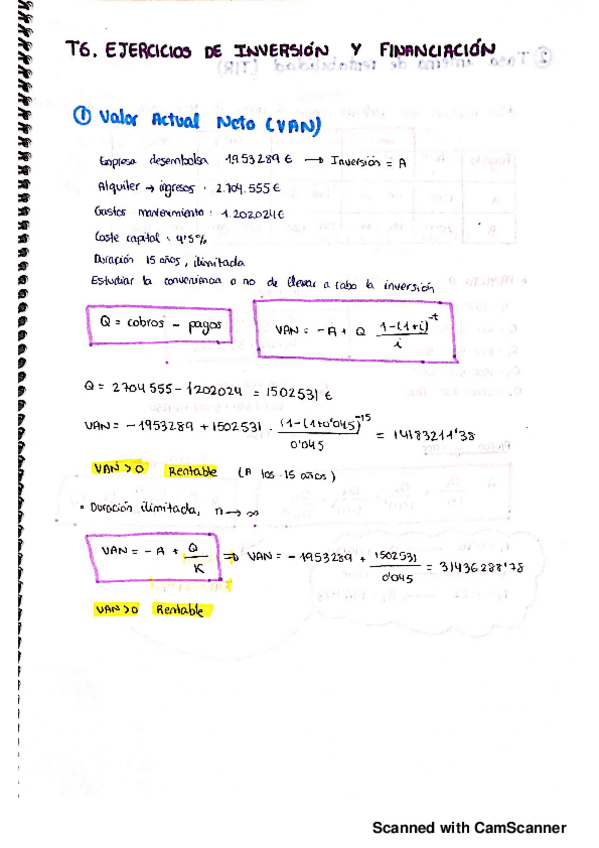 T6. EJERCICIOS DE INVERSIÓN Y FINANCIACIÓN
① Valor Actual Neto (VAN)
Empresa desembolsa 1953289 € → Inversión = A
Alquiler → ingresos : 2.704.555 €
Gastos mantenimiento : 1.202024 €
Coste capital : 4'5%
Duración 15 años, ilimitada
Estudiar la conveniencia o no de llevar a cabo la inversión
Q = cobros - pagos
VAN = -A + Q (1-(1+i)^-t)/i
Q = 2704555 - 1202024 = 1502531 €
VAN = -1953289 + 1502531 · (1-(1+0'045)^-15)/0'045 = 14183211'38
VAN > 0 Rentable (A los 15 años)
• Duración ilimitada, n → ∞
VAN = -A + Q/K ⇒ VAN = -1953289 + 1502531/0'045 = 31436288'78
VAN > 0 Rentable
Scanned with CamScanner